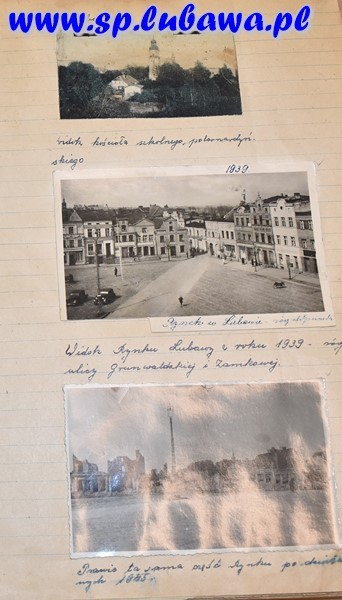 www.sp.lubawa.pl
Widok kościoła szkolnego, pobernardyń-
skiego
1939
Rynek w Lubawie.
Widok Rynku Lubawy w roku 1939 - róg
ulicy Grunwaldzkiej i Zamkowej.
Prawie ta sama część rynku po działa-
nych 1945 r.